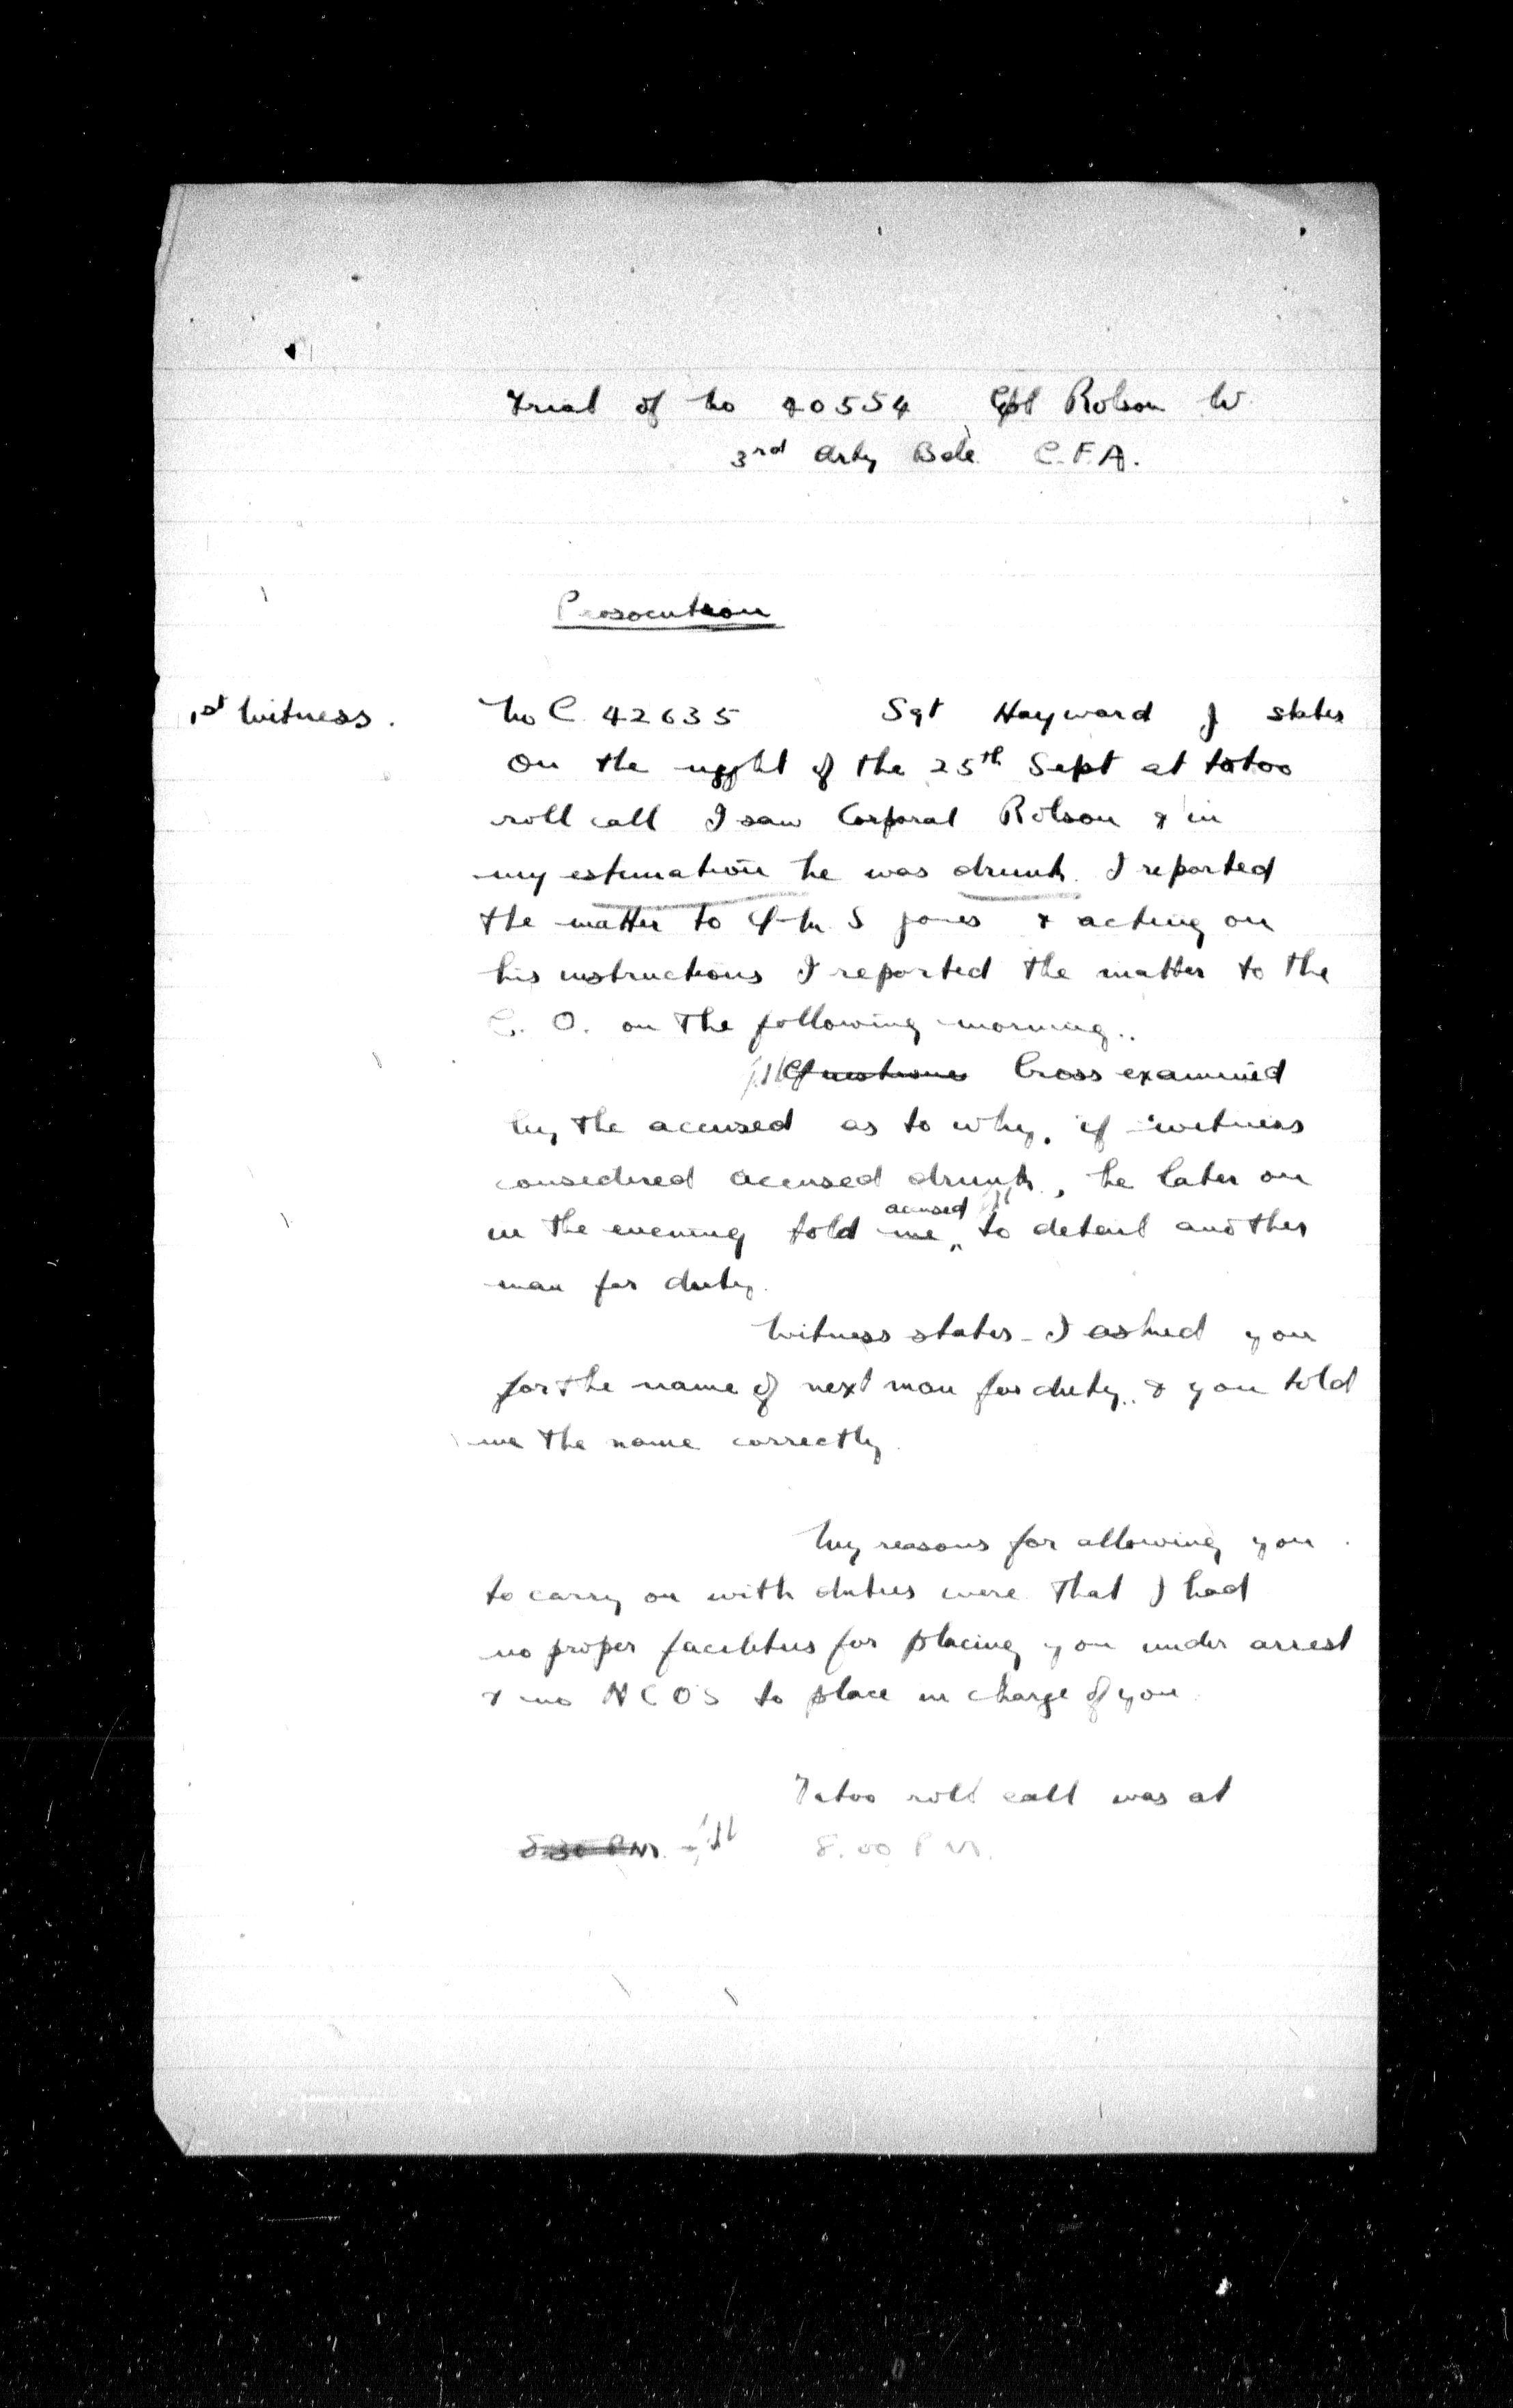 Trial of No 40554 Cpl Robson W.
3rd Arty Bde C.F.A.
Prosocution
1st Witness. No C. 42635 Sgt Hayward J states
On the night of the 25th Sept at tatoo
roll call I saw Corporal Robson & in
my estimation he was drunk. I reported
the matter to Q.M.S Jones & acting on
his instructions I reported the matter to the
C. O. on the following morning.
Questions Cross examined
by the accused as to why, if witness
considered accused drunk, he later on
accused
in the evening told me to detail another
man for duty.
Witness states - I asked you
for the name of next man for duty. & you told
me the name correctly.
My reasons for allowing you
to carry on with duties were that I had
no proper facilities for placing you under arrest
& no NCOS to place in charge of you.
Tatoo roll call was at
8.30 P.M. 8.00 P.M.